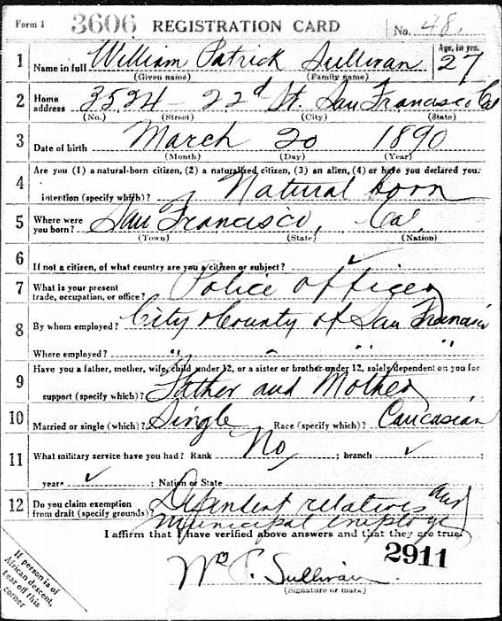 Form 1 3606 REGISTRATION CARD No. 48
1 Name in full William Patrick Sullivan Age, in yrs. 27
(Given name) (Family name)
2 Home address 3524 - 22d St. San Francisco Cal
(No.) (Street) (City) (State)
3 Date of birth March 20 1890
(Month) (Day) (Year)
4 Are you (1) a natural-born citizen, (2) a naturalized citizen, (3) an alien, (4) or have you declared your
intention (specify which)? Natural born
5 Where were you born? San Francisco, Cal.
(Town) (State) (Nation)
6 If not a citizen, of what country are you a citizen or subject? ✓
7 What is your present trade, occupation, or office? Police officer
8 By whom employed? City & County of San Francisco
Where employed? " " " "
9 Have you a father, mother, wife, child under 12, or a sister or brother under 12, solely dependent on you for
support (specify which)? Father and Mother
10 Married or single (which)? Single Race (specify which)? Caucasian
11 What military service have you had? Rank No ; branch ✓ ;
years ✓ ; Nation or State
12 Do you claim exemption from draft (specify grounds)? Dependent relatives and
municipal employe
I affirm that I have verified above answers and that they are true.
2911
Wm P. Sullivan.
(Signature or mark)
If person is of
African descent,
tear off this
corner